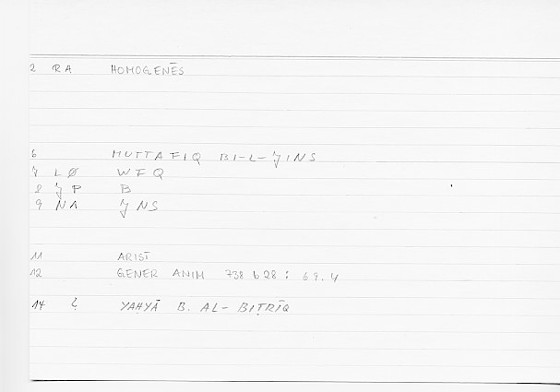 2 RA HOMOGENĒS
6 MUTTAFIQ BI-L-JINS
7 LØ WFQ
8 JP B
9 NA JNS
11 ARIST
12 GENER ANIM 738 b 28 : 69.4
14 YAHYĀ B. AL-BIṬRĪQ